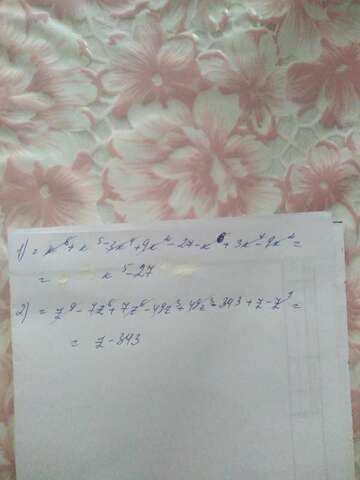 1) = к⁶ + к⁵ - 3к⁴ + 9к² - 27 - к⁶ + 3к⁴ - 9к² =
= к⁵ - 27
2) = z⁹ - 7z⁶ + 7z⁶ - 49z³ + 49z³ - 343 + z - z⁹ =
= z - 343